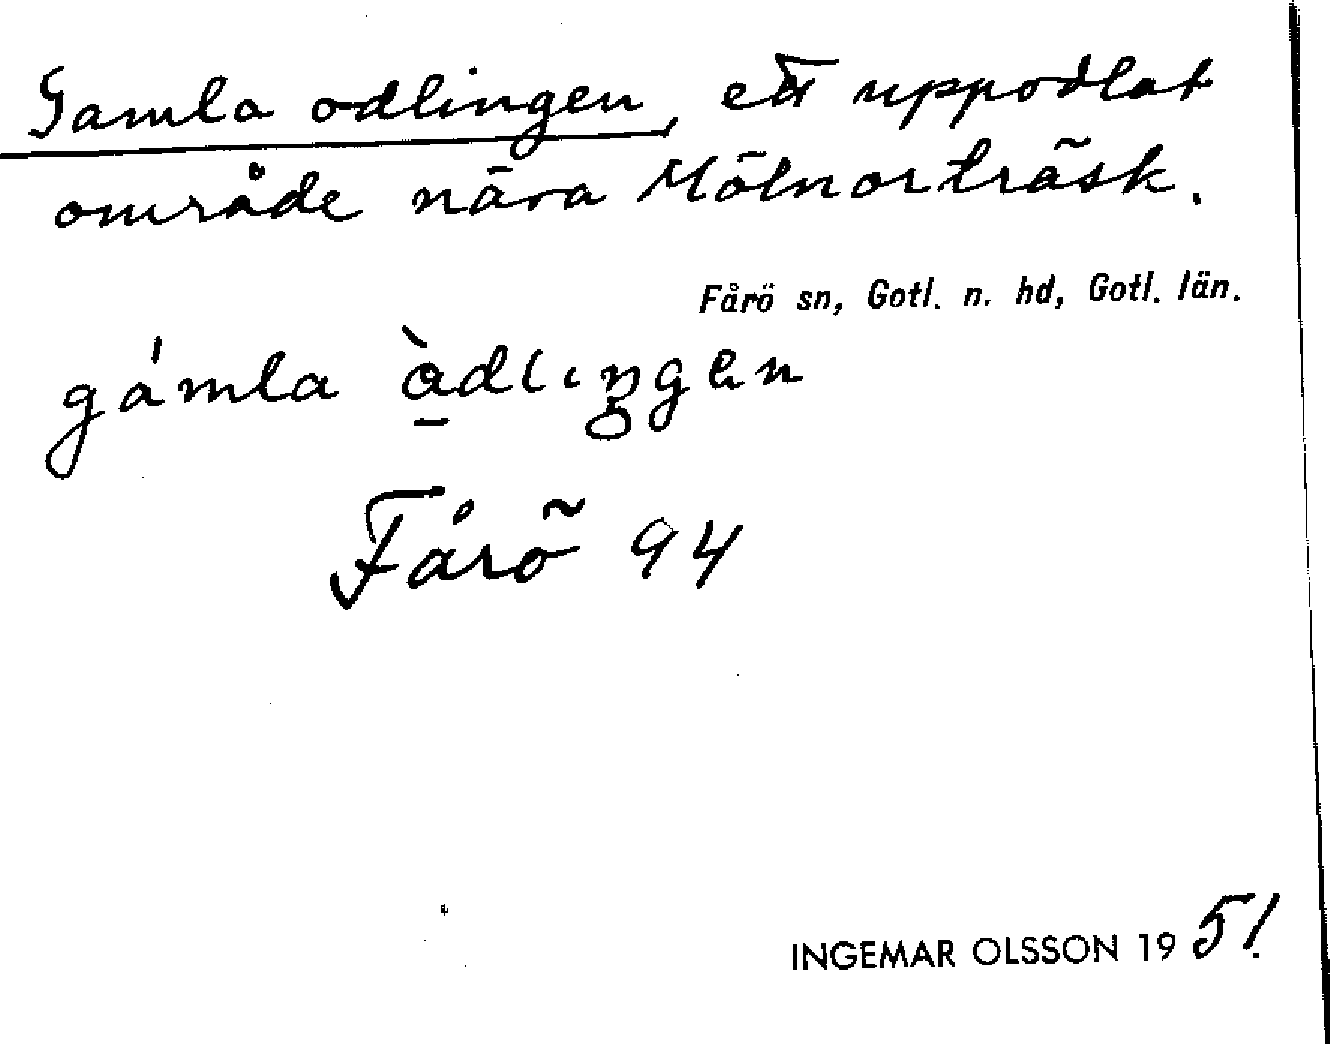 Gamla odlingen, ett uppodlat
område nära Mölnorträsk.
Fårö sn, Gotl. n. hd, Gotl. län.
gámla òdlingen
Fårö 94
INGEMAR OLSSON 1951.